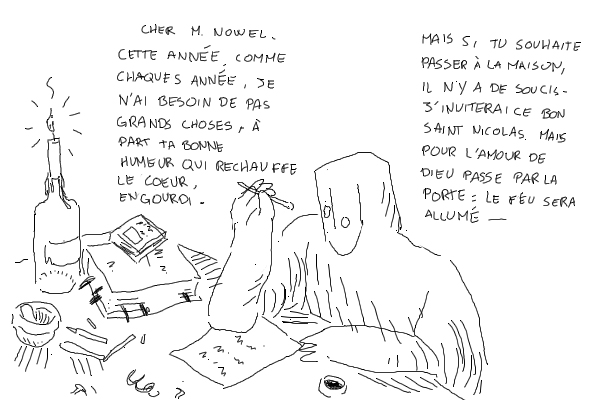 CHER M. NOWEL.
CETTE ANNÉE, COMME
CHAQUES ANNÉE, JE
N'AI BESOIN DE PAS
GRANDS CHOSES, À
PART TA BONNE
HUMEUR QUI RECHAUFFE
LE COEUR,
ENGOURDI.
MAIS SI TU SOUHAITE
PASSER À LA MAISON,
IL N'Y A DE SOUCIS-
J'INVITERAI CE BON
SAINT NICOLAS. MAIS
POUR L'AMOUR DE
DIEU PASSE PAR LA
PORTE : LE FEU SERA
ALLUMÉ —